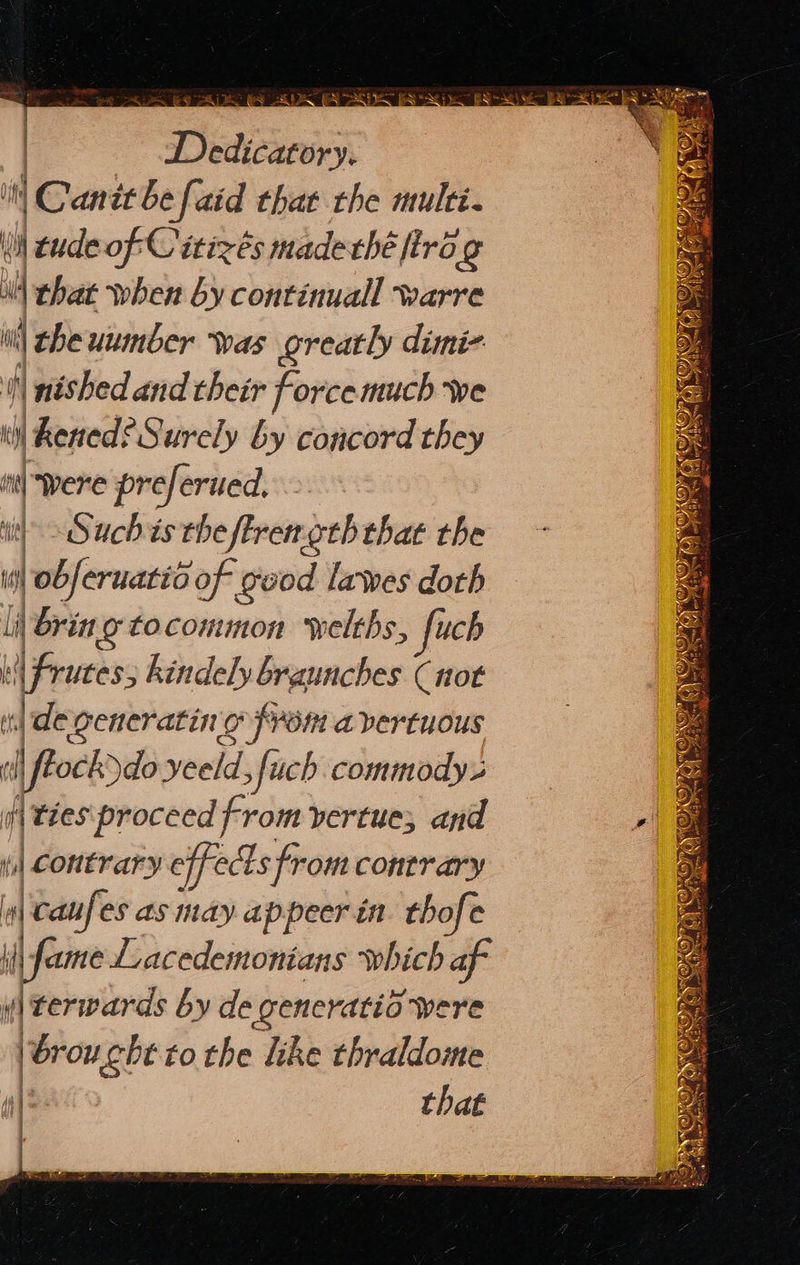 Dedicatory.
Can it be ſaid that the multi-
tude of Citizēs made thē ſtrōg
that when by continuall warre
the uumber was greatly dimi-
nished and their force much we
kened? Surely by concord they
were preſerued.
Such is the ſtrength that the
obſeruatiō of good lawes doth
bring to common welths, ſuch
frutes, kindely braunches (not
degenerating from a vertuous
ſtock) do yeeld, ſuch commody-
ties proceed from vertue, and
contrary effects from contrary
cauſes as may appeer in thoſe
ſame Lacedemonians which af
terwards by degeneratiō were
brought to the like thraldome
that